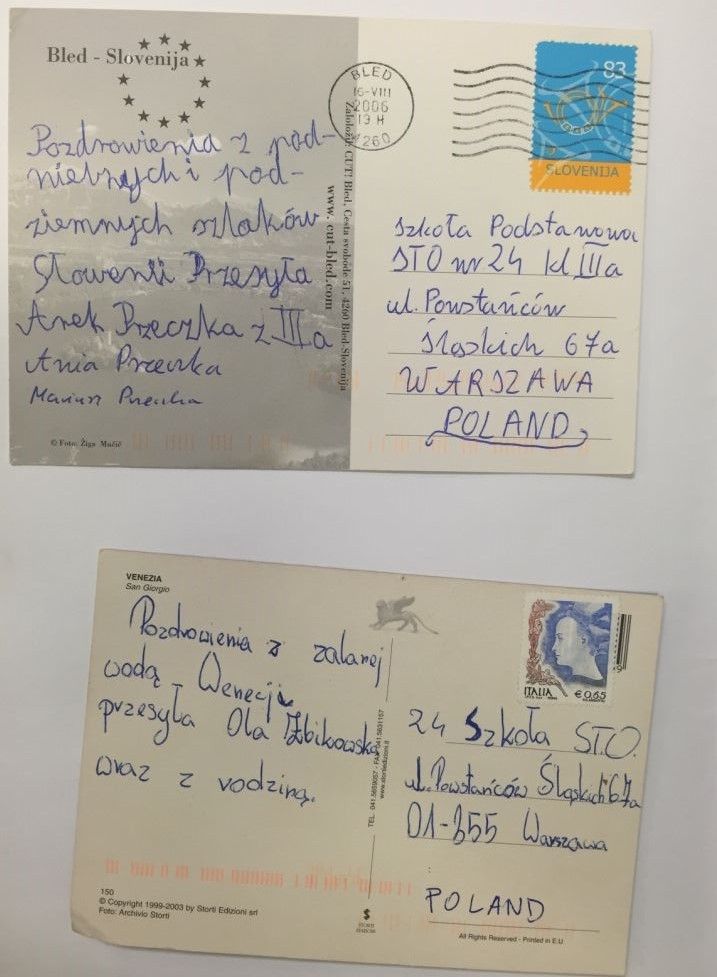 Bled - Slovenija
BLED
16-VIII
2006
13 H
4260
83
SLOVENIJA
Pozdrowienia z pod-
niebnych i pod-
ziemnych szlaków
Słowenii Przesyła
Arek Przeczka z IIIa
Ania Przeczka
© Foto: Žiga
Založil: CUT! Bled, Cesta svobode 51, 4260 Bled-Slovenija
www.cut-bled.com
Szkoła Podstawowa
STO nr 24 kl IIIa
ul. Powstańców
Śląskich 67a
WARSZAWA
POLAND
VENEZIA
San Giorgio
Pozdrowienia z zalanej
wodą Wenecji
przesyła Ola Zbikowska
wraz z rodziną.
150
© Copyright 1999-2003 by Storti Edizioni srl
Foto: Archivio Storti
TEL. 041.5659057 - FAX 041.5631157
www.stortiedizioni.it
STORTI
EDIZIONI
ITALIA
€ 0,65
24 Szkoła STO.
ul. Powstańców Śląskich 67a
01-355 Warszawa
POLAND
All Rights Reserved - Printed in E.U